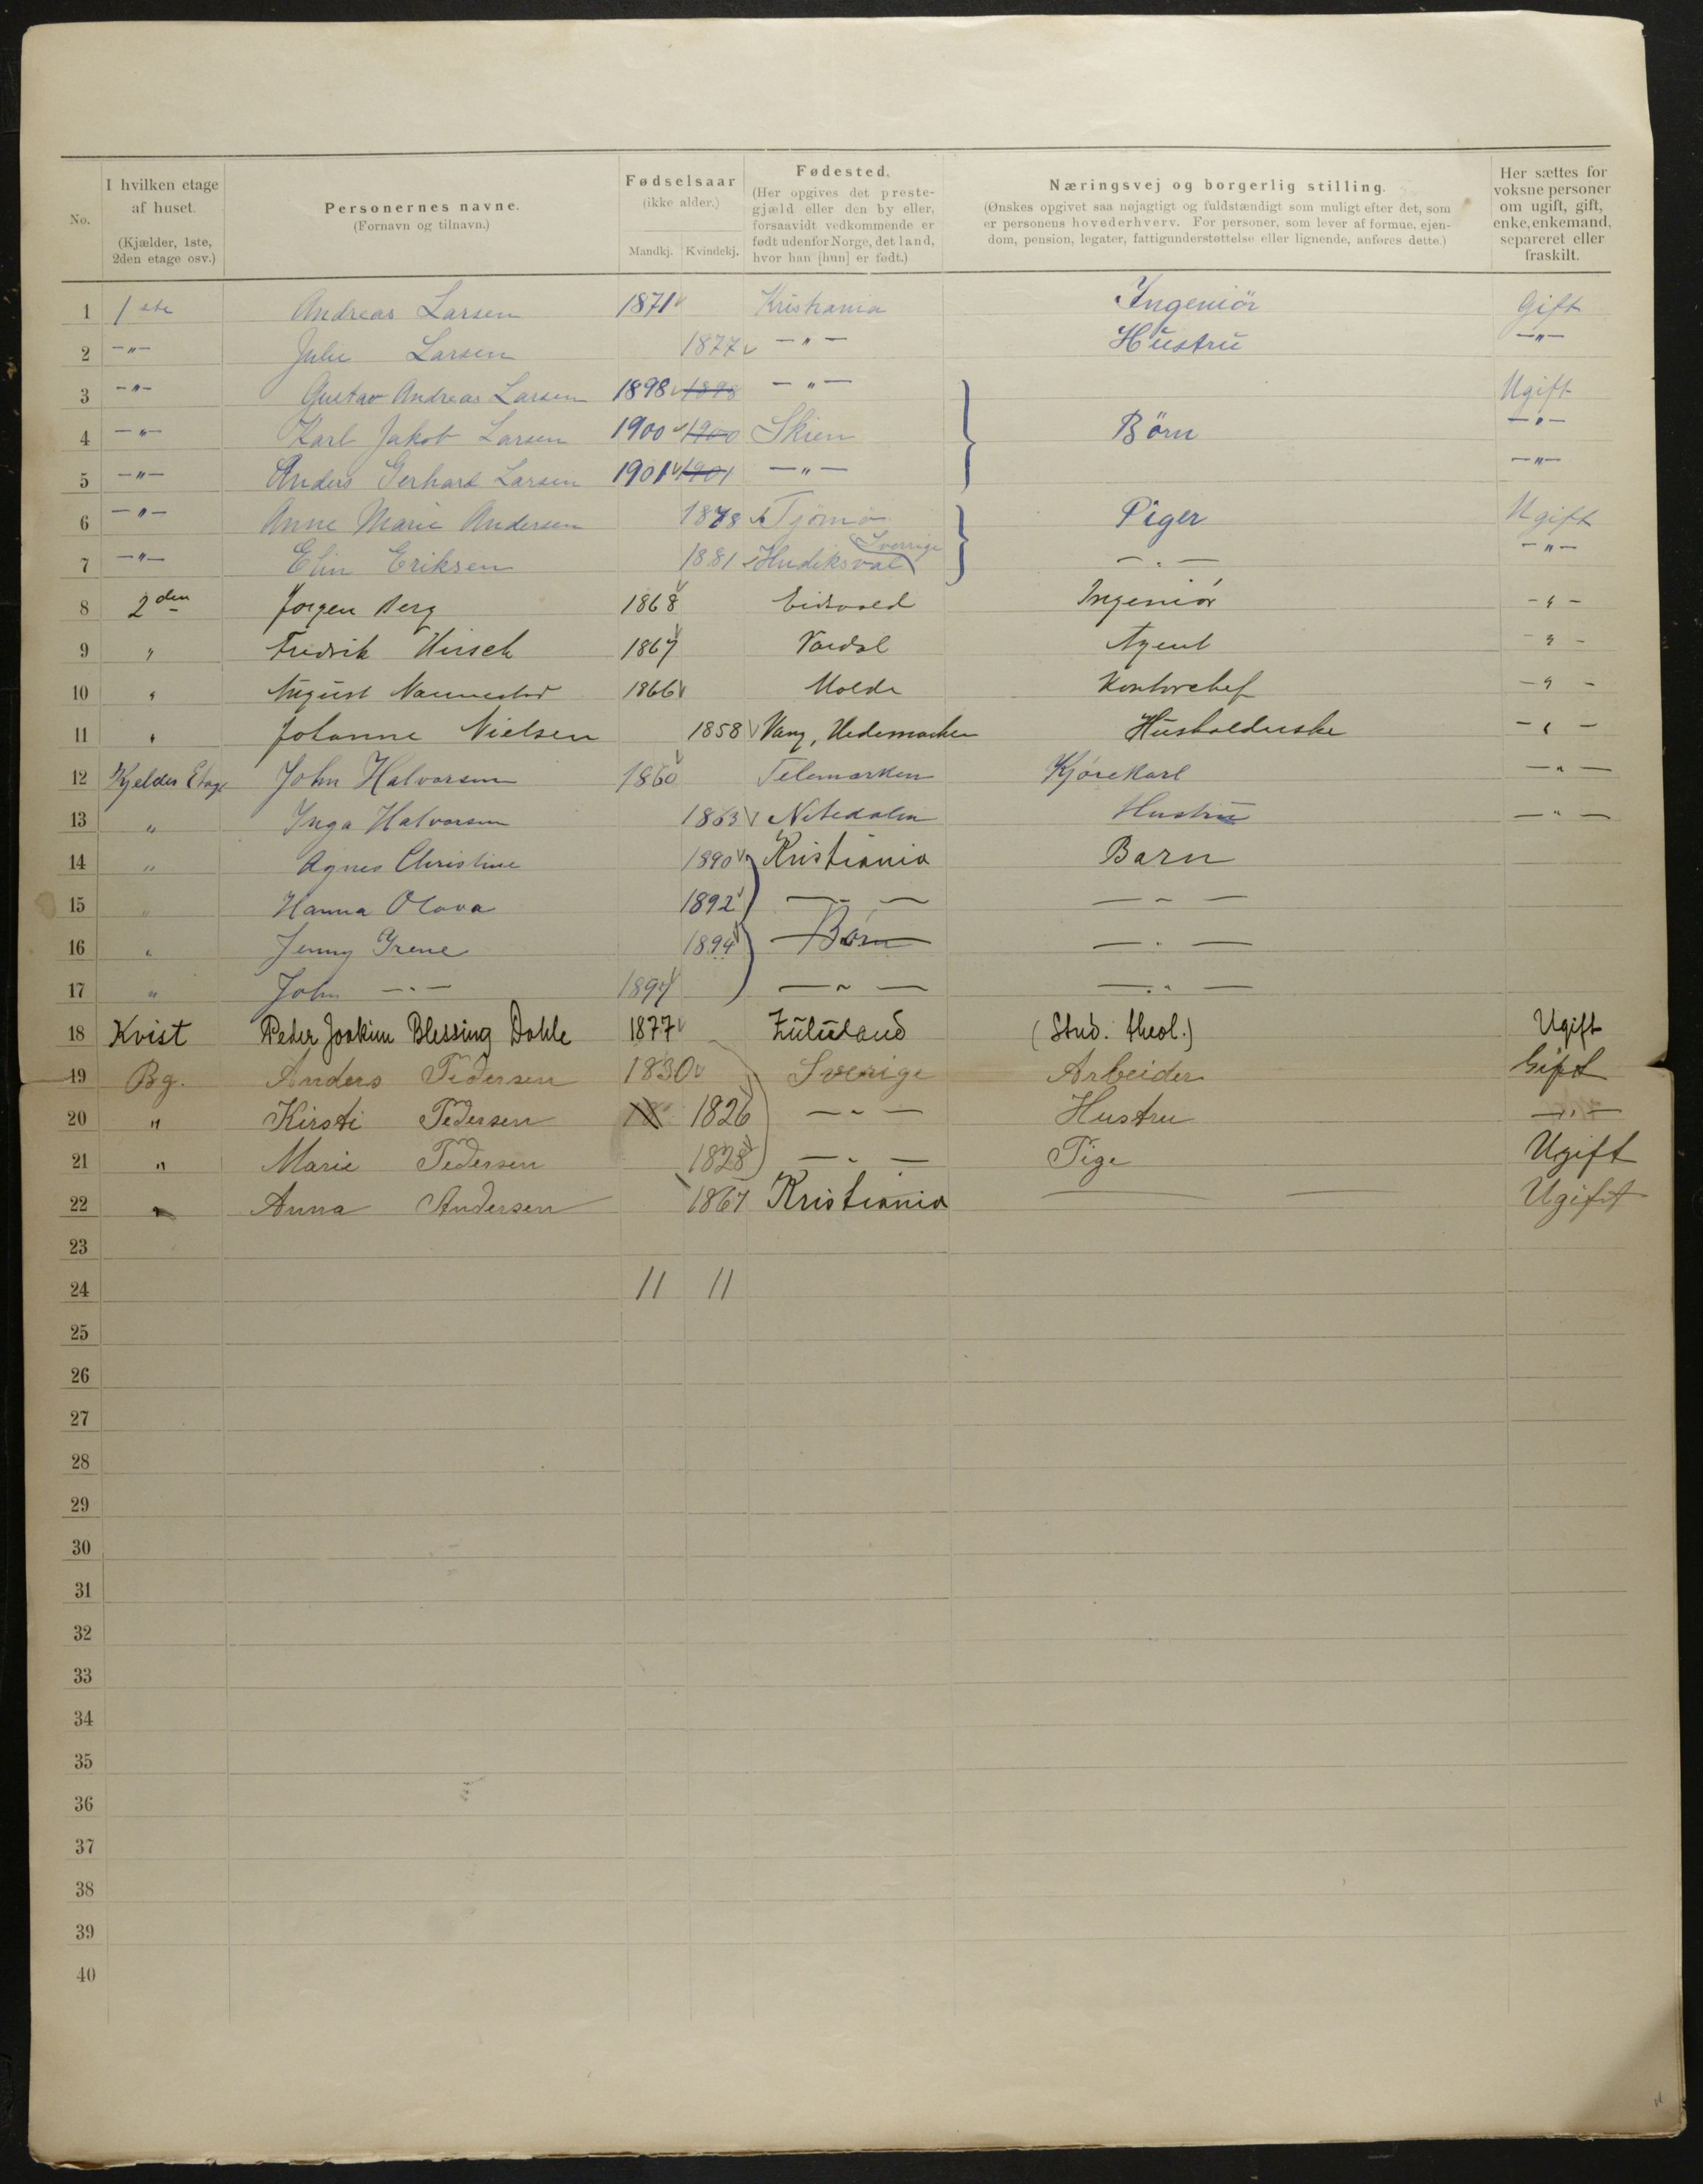 No.
I hvilken etage af huset. (Kjælder, 1ste, 2den etage osv.)
Personernes navne. (Fornavn og tilnavn.)
Fødselsaar (ikke alder.) Mandkj. Kvindekj.
Fødested. (Her opgives det prestegjæld eller den by eller, forsaavidt vedkommende er født udenfor Norge, det land, hvor han [hun] er født.)
Næringsvej og borgerlig stilling. (Ønskes opgivet saa nøjagtigt og fuldstændigt som muligt efter det, som er personens hovederhverv. For personer, som lever af formue, ejendom, pension, legater, fattigunderstøttelse eller lignende, anføres dette.)
Her sættes for voksne personer om ugift, gift, enke, enkemand, separeret eller fraskilt.
1 1ste Andreas Larsen 1871 Kristiania Ingeniör Gift
2 -"- Julie Larsen 1877 -"- Hustru -"-
3 -"- Gustav Andreas Larsen 1898 1898 -"- Ugift
4 -"- Karl Jakob Larsen 1900 1900 Skien Börn -"-
5 -"- Anders Gerhard Larsen 1901 1901 -"- -"-
6 -"- Anne Marie Andersen 1878 Tjömö Piger Ugift
7 -"- Elin Eriksen 1881 Hudiksval Sverrige -"- -"-
8 2den Jørgen Berg 1868 Eidsvold Ingeniør -"-
9 " Fredrik Hirsch 1867 Vardal Agent -"-
10 " August 1866 Molde Kontorchef -"-
11 " Johanne Nielsen 1858 Vang, Hedemarken Husholderske -"-
12 Kjelder Etage John Halvorsen 1860 Telemarken Kjørekarl -"-
13 " Inga Halvorsen 1863 Nitedalen Hustru -"-
14 " Agnes Christine 1890 Kristiania Barn
15 " Hanna Olava 1892 -"- -"-
16 " Jenny Irene 1894 Børn -"-
17 " John -"- 1897 -"- -"-
18 Kvist Peder Joakim Blessing Dahle 1877 Zululand (Stud. theol.) Ugift
19 Bg. Anders Pedersen 1830 Sverige Arbeider Gift
20 " Kirsti Pedersen 18 1826 -"- Hustru -"-
21 " Marie Pedersen 1828 -"- Pige Ugift
22 " Anna Andersen 1867 Kristiania Ugift
23
24 11 11
25
26
27
28
29
30
31
32
33
34
35
36
37
38
39
40